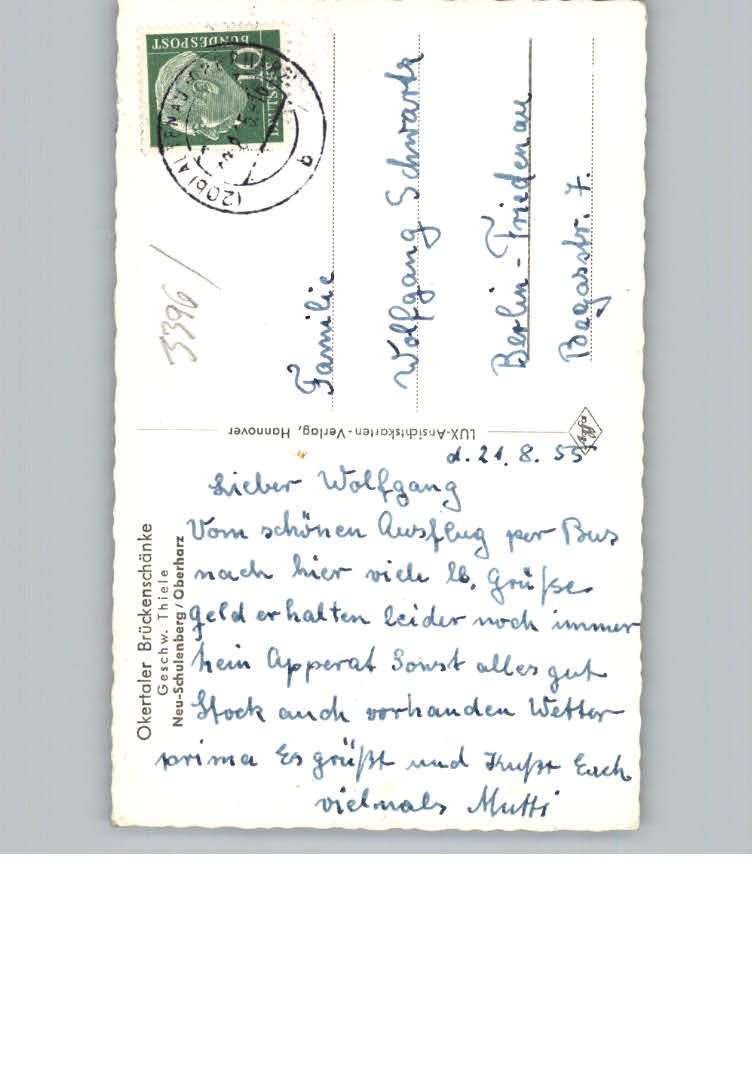 d. 21. 8. 55
Lieber Wolfgang
Vom schönen Ausflug per Bus
nach hier viele lb. Grüße
Geld erhalten leider noch immer
kein Apperat Sonst alles gut
Stock auch vorhanden Wetter
prima Es grüßt und Küßt Euch
vielmals Mutti
Okertaler Brückenschänke
Geschw. Thiele
Neu-Schulenberg / Oberharz
LUX-Ansichtskarten-Verlag, Hannover
Agfa
Familie
Wolfgang Schwartz
Berlin-Friedenau
Begasstr. 7.
3396/
DEUTSCHE
BUNDESPOST
10
(20b) ALTENAU
a